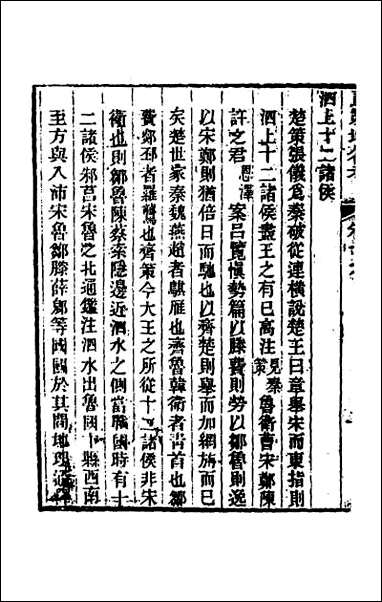 泗上十二諸侯
楚策張儀爲秦破從連橫說楚王曰章舉宋而東指則
泗上十二諸侯盡王之有巳高注見秦策魯衛曹宋鄭陳
許之君恩澤案呂覽愼勢篇以滕費則勞以鄒魯則逸
以宋鄭則猶倍日而馳也以齊楚則舉而加網旃而巳
矣楚世家秦魏燕趙者鶀雁也齊魯韓衛者靑首也鄒
費郯邳者羅鸗也齊策今大王之所從十二諸侯非宋
衛也則鄒魯陳蔡案隱邊近泗水之側當戰國時有十
二諸侯邾莒宋魯之北通鑑注泗水出魯國卞縣西南
至方與入沛宋魯鄒滕薛郳等國國於其間地理通釋